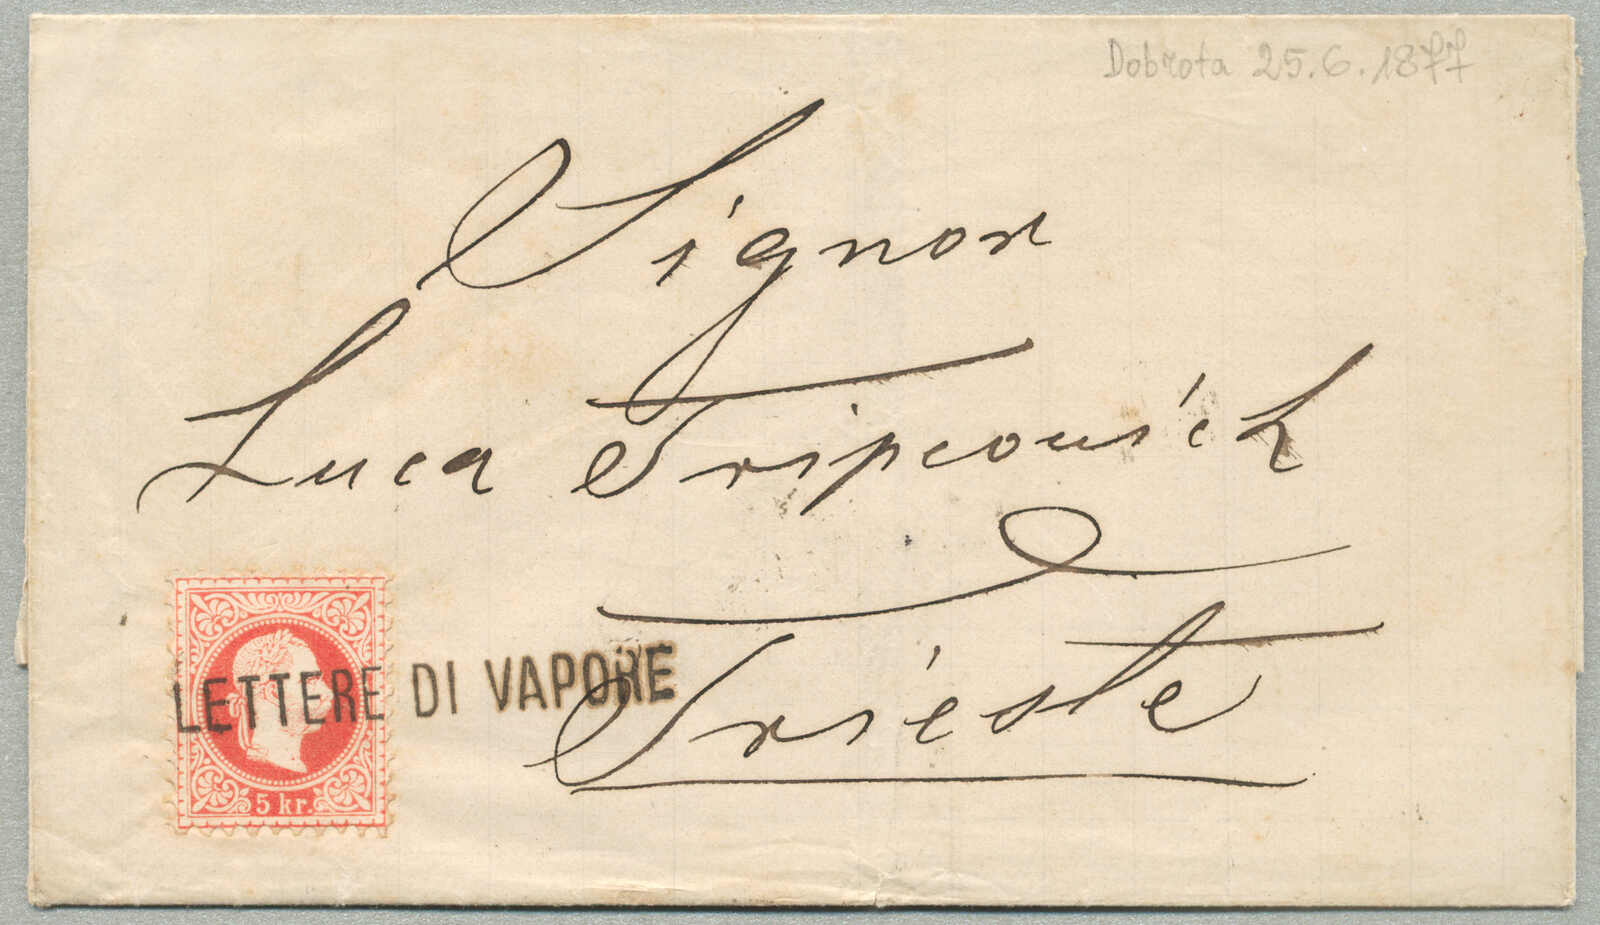 Dobrota 25.6.1877
Signor
Luca Tripcovich
Trieste
LETTERE DI VAPORE
5 kr.